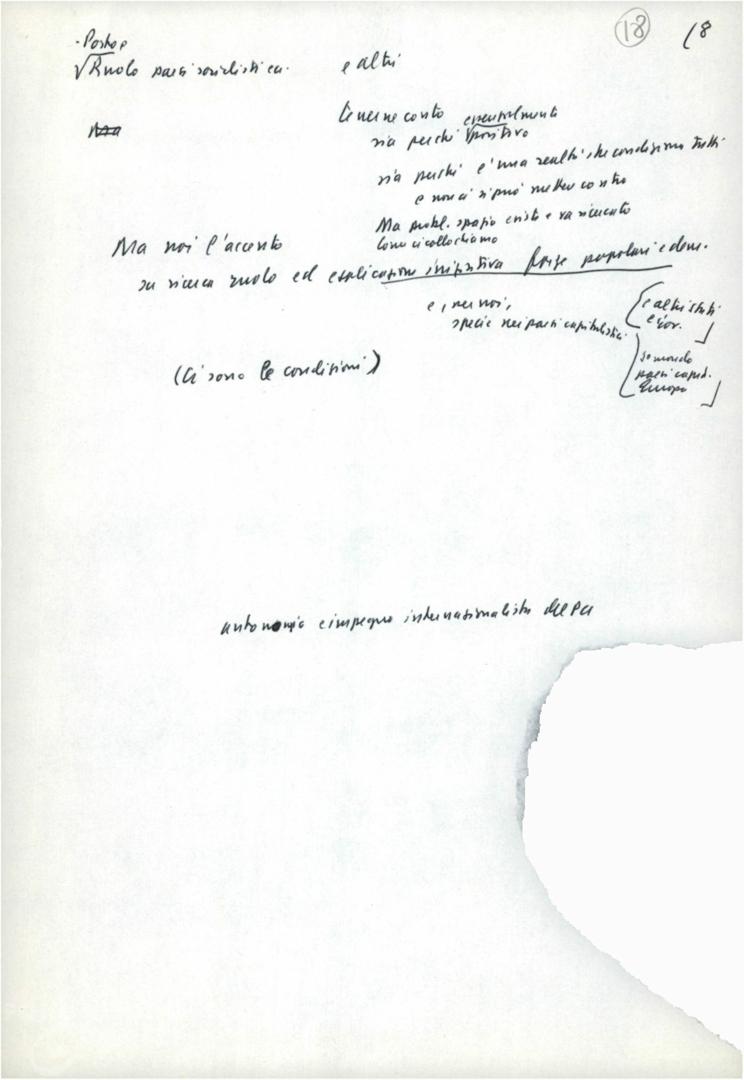 18 18
· Posto e
√Ruolo paesi socialisti ecc. e altri
Tenerne conto essenzialmente
sia perché positivo
sia perché è una realtà che condiziona tutti
e non ci si può metter contro
Ma probl. spazio esiste e va ricercato
Come ci collochiamo
Ma noi l'accento
su ricerca ruolo ed esplicazione iniziativa forze popolari e dem.
e, per noi,
specie nei paesi capitalistici
e altri stati
e gov.
mondo
paesi capit.
Europa
(Ci sono le condizioni)
autonomia e impegno internazionalista del PCI